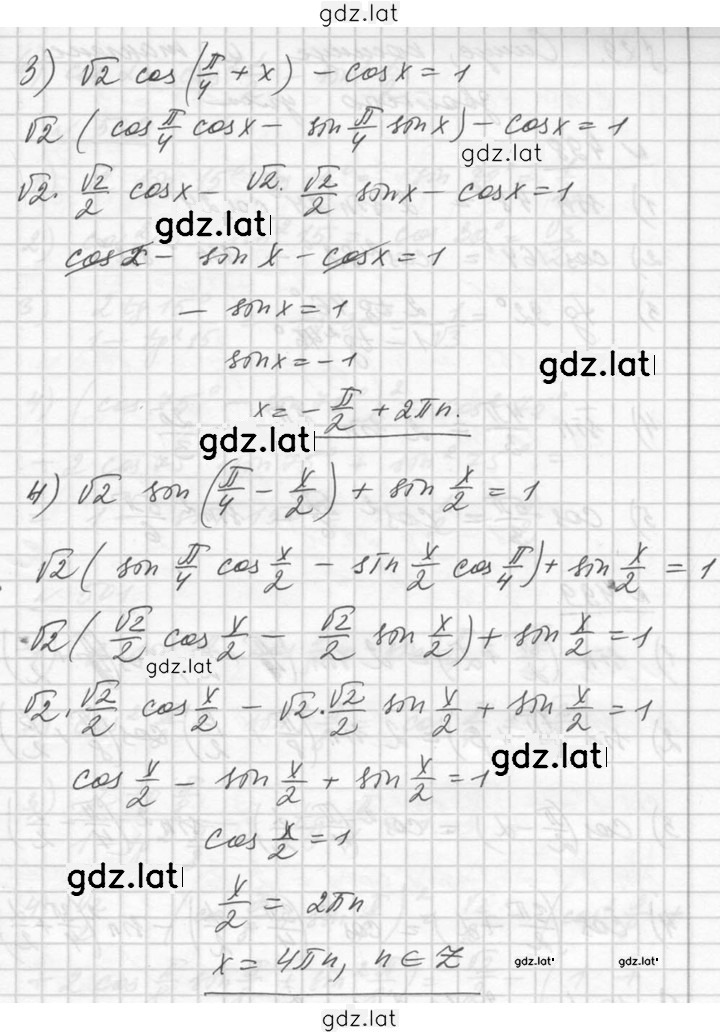 gdz.lat
3) √2 cos(π/4 + x) - cosx = 1
√2 ( cos π/4 cosx - sin π/4 sinx) - cosx = 1
gdz.lat
√2 · √2/2 cosx - √2 · √2/2 sinx - cosx = 1
gdz.lat
cosx - sinx - cosx = 1
- sinx = 1
sinx = -1
gdz.lat
x = - π/2 + 2πn.
gdz.lat
4) √2 sin(π/4 - x/2) + sin x/2 = 1
√2 ( sin π/4 cos x/2 - sin x/2 cos π/4) + sin x/2 = 1
√2 ( √2/2 cos x/2 - √2/2 sin x/2) + sin x/2 = 1
gdz.lat
√2 · √2/2 cos x/2 - √2 · √2/2 sin x/2 + sin x/2 = 1
gdz.lat
cos x/2 - sin x/2 + sin x/2 = 1
cos x/2 = 1
gdz.lat
x/2 = 2πn
x = 4πn, n ∈ Z
gdz.lat
gdz.lat
gdz.lat